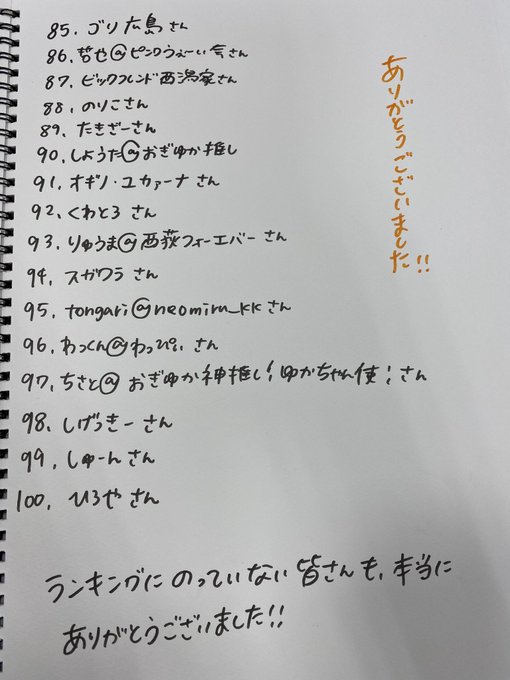 85. ゴリ広島さん
86. 哲也@ピンクうぇーい会さん
87. ビックフレンド西潟家さん
88. のりこさん
89. たきざーさん
90. しようた@おぎゆか推し
91. オギノ・ユカァーナさん
92. くわとろさん
93. りゅうま@西荻フォーエバーさん
94. スガワラさん
95. tongari@neomiru_kkさん
96. わっくん@わっぴぃさん
97. ちさと@おぎゆか神推し!ゆかちゃん使!さん
98. しげっきーさん
99. しゅーんさん
100. ひろやさん
ありがとうございました!!
ランキングにのっていない皆さんも、本当に
ありがとうございました!!